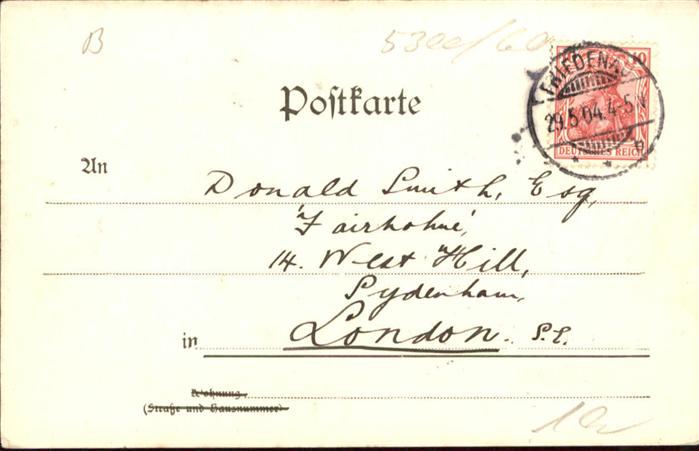 B
Postkarte
FRIEDENAU
29.5.04.4-5N
10
DEUTSCHES REICH
An
Donald Smith, Esq,
'Fairholme',
14. West Hill,
Sydenham,
in London. S.E.
Wohnung
(Straße und Hausnummer)